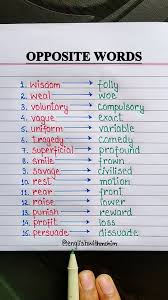 OPPOSITE WORDS
1. wisdom → folly
2. weal → woe
3. voluntary → compulsory
4. vague → exact
5. uniform → variable
6. tragedy → comedy
7. superficial → profound
8. smile → frown
9. savage → civilised
10. rest → motion
11. rear → front
12. raise → lower
13. punish → reward
14. profit → loss
15. persuade → dissuade